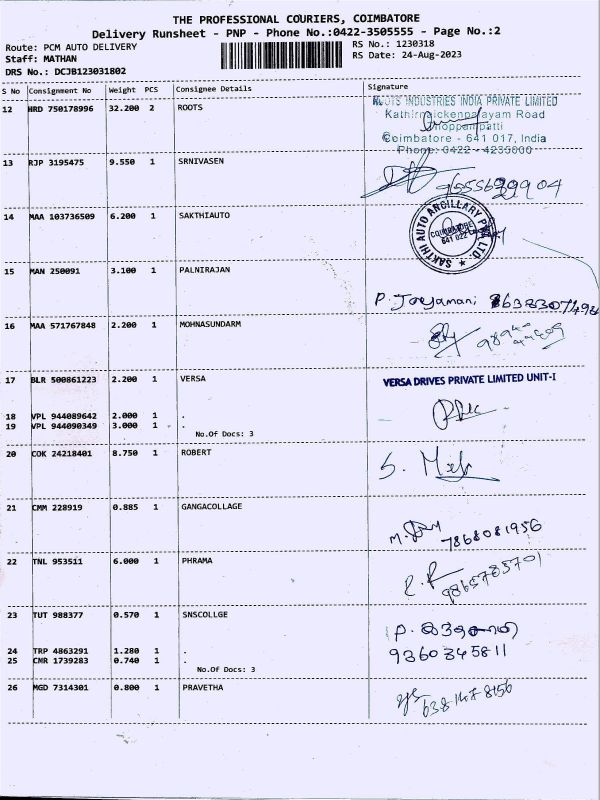 THE PROFESSIONAL COURIERS, COIMBATORE
Delivery Runsheet - PNP - Phone No.:0422-3505555 - Page No.:2
Route: PCM AUTO DELIVERY
RS No.: 1230318
Staff: MATHAN
RS Date: 24-Aug-2023
DRS No.: DCJB123031802
S No Consignment No Weight PCS Consignee Details Signature
12 HRD 750178996 32.200 2 ROOTS
ROOTS INDUSTRIES INDIA PRIVATE LIMITED
Kathirnaickenpalayam Road
Thoppampatti
Coimbatore - 641 017, India
Phone: 0422 - 4235000
13 RJP 3195475 9.550 1 SRNIVASEN
14 MAA 103736509 6.200 1 SAKTHIAUTO
SAKTHI AUTO ANCILLARY PVT. LTD.
COIMBATORE
15 MAN 250091 3.100 1 PALNIRAJAN
P. Jeyamani
16 MAA 571767848 2.200 1 MOHNASUNDARM
17 BLR 500861223 2.200 1 VERSA
VERSA DRIVES PRIVATE LIMITED UNIT-I
18 VPL 944089642 2.000 1 .
19 VPL 944090349 3.000 1 .
No.Of Docs: 3
20 COK 24218401 8.750 1 ROBERT
21 CMM 228919 0.885 1 GANGACOLLAGE
7868081956
22 TNL 953511 6.000 1 PHRAMA
9865785701
23 TUT 988377 0.570 1 SNSCOLLGE
24 TRP 4863291 1.280 1 .
9360345811
25 CMR 1739283 0.740 1 .
No.Of Docs: 3
26 MGD 7314301 0.800 1 PRAVETHA